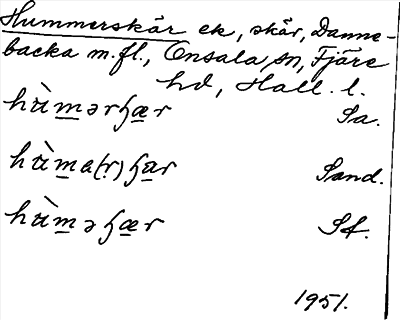 Hummerskär ek, skär, Danne-
backa m.fl., Onsala sn, Fjäre
hd, Hall. l.
hu̇̀m̲ərɧæ̲r Sa.
hu̇̀m̲a(r)ɧa̲r Sand.
hu̇̀m̲əɧæ̲r Sf.
1951.